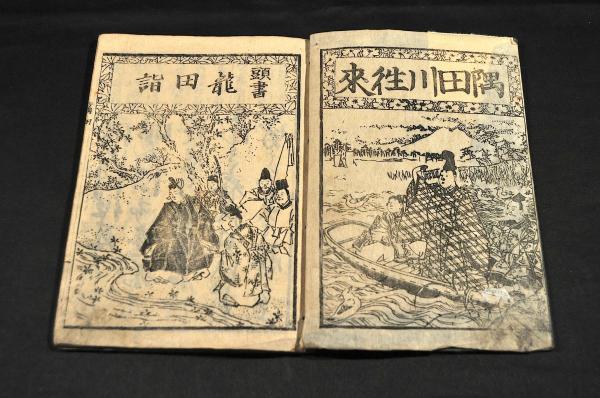 隅田川徃來
頭書
龍田詣